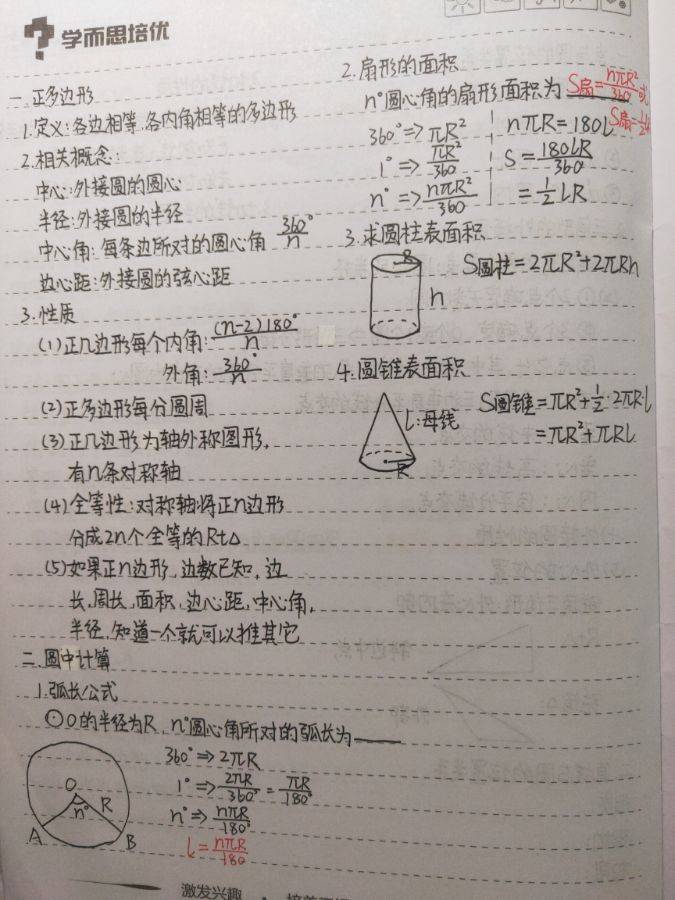 学而思培优
一.正多边形
1.定义:各边相等,各内角相等的多边形
2.相关概念:
中心:外接圆的圆心
半径:外接圆的半径
中心角:每条边所对的圆心角 360°/n
边心距:外接圆的弦心距
3.性质
(1)正几边形每个内角:(n-2)180°/n
外角:360°/n
(2)正多边形每分圆周
(3)正几边形为轴外称图形,
有n条对称轴
(4)全等性:对称轴将正n边形
分成2n个全等的Rt△
(5)如果正n边形,边数已知,边
长,周长,面积,边心距,中心角,
半径,知道一个就可以推其它
二.圆中计算
1.弧长公式
⊙O的半径为R,n°圆心角所对的弧长为
360°⇒2πR
1°⇒2πR/360°=πR/180°
n°⇒nπR/180°
l=nπR/180
O
n°
R
A
B
2.扇形的面积
n°圆心角的扇形面积为 S扇=nπR²/360 或
S扇=½lR
360°⇒πR²
1°⇒πR²/360
n°⇒nπR²/360
nπR=180l
S=180lR/360
=½lR
3.求圆柱表面积
R
h
S圆柱=2πR²+2πRh
4.圆锥表面积
l:母线
R
S圆锥=πR²+½·2πR·l
=πR²+πRl
激发兴趣